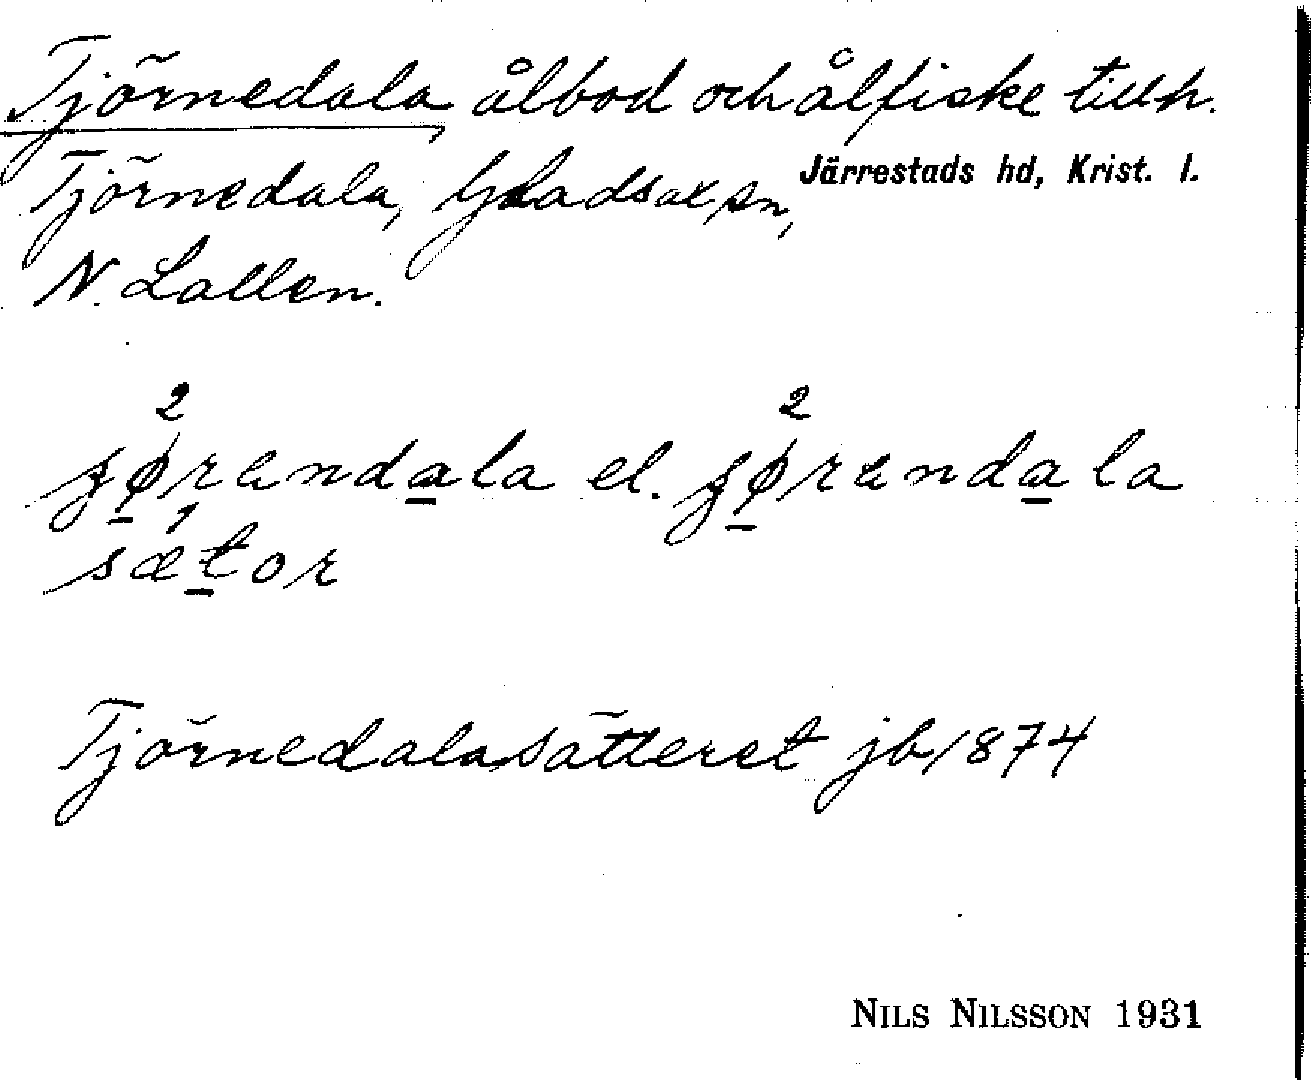 Tjörnedala, ålbod och ålfiske tillh.
Tjörnedala, Gladsax sn, Järrestads hd, Krist. l.
N. Lallen.
2 2
el.
1
sætor
Tjörnedalasätteret jb 1874
NILS NILSSON 1931